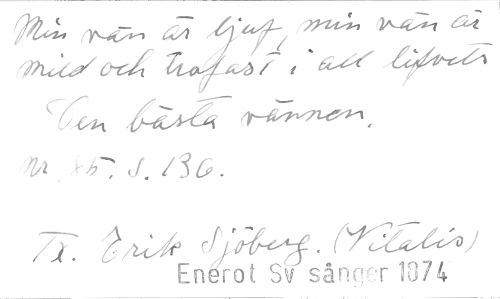 Min vän är ljuf, min vän är
mild och trofast i all lifvets
Den bästa vännen.
nr 85. s. 136.
Tx. Erik Sjöberg. (Vitalis)
Enerot Sv sånger 1874